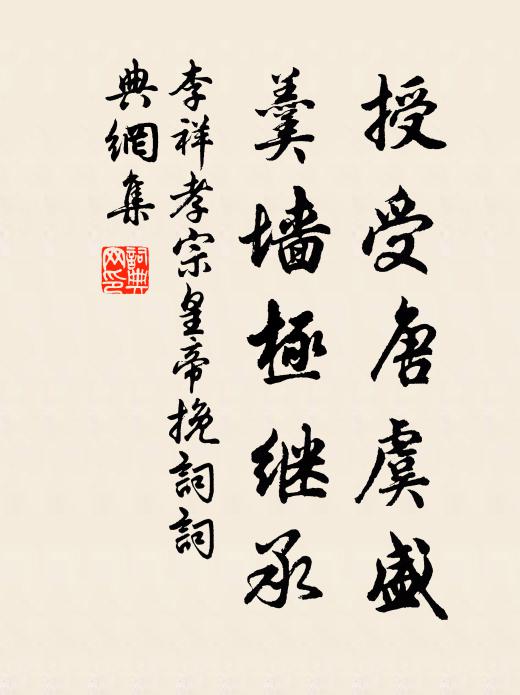 授受唐虞盛
羹墙極继承
李祥孝宗皇帝挽詞詞
典網集
詞典网印